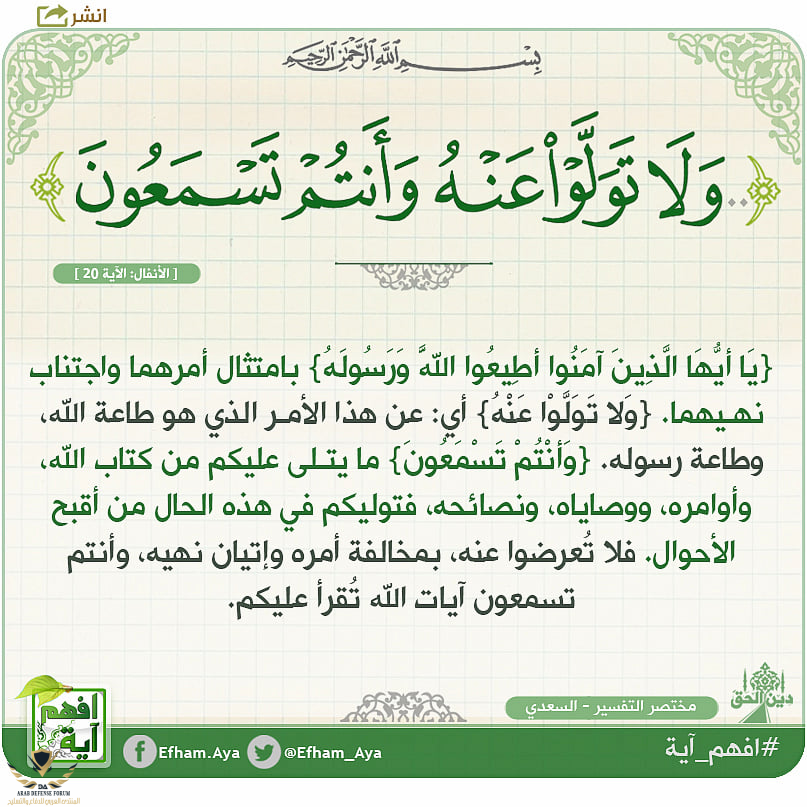 انشر
بِسْمِ اللَّهِ الرَّحْمَٰنِ الرَّحِيمِ
..وَلَا تَوَلَّوْا۟ عَنْهُ وَأَنتُمْ تَسْمَعُونَ
[ الأنفال: الآية 20 ]
{يَا أيُّهَا الَّذِينَ آمَنُوا أطِيعُوا اللهَّ وَرَسُولَهُ} بامتثال أمرهما واجتناب
نهيهما. {وَلا تَوَلَّوْا عَنْهُ} أي: عن هذا الأمر الذي هو طاعة الله،
وطاعة رسوله. {وَأنْتُمْ تَسْمَعُونَ} ما يتلى عليكم من كتاب الله،
وأوامره، ووصاياه، ونصائحه، فتوليكم في هذه الحال من أقبح
الأحوال. فلا تُعرضوا عنه، بمخالفة أمره وإتيان نهيه، وأنتم
تسمعون آيات الله تُقرأ عليكم.
دين الحق
مختصر التفسير - السعدي
#افهم_آية
@Efham_Aya
Efham.Aya
افهم
آية
ARAB DEFENSE FORUM
المنتدى العربي للدفاع والتسليح